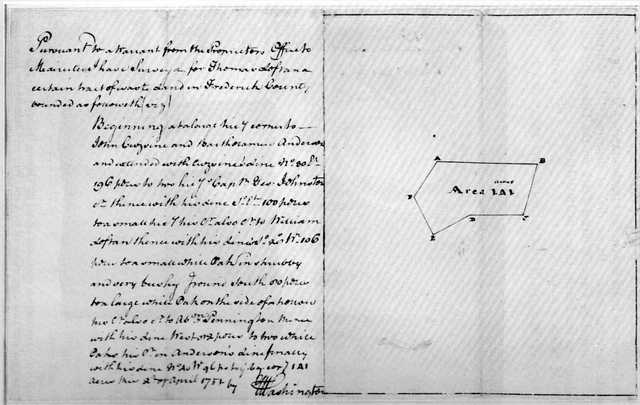 Pursuant to a Warrant from the Proprietors Office to
Me directed I have Surveyd for Thomas Loftan a
certain tract of waste Land in Frederick County
bounded as followeth (viz)
Beginning at a large hicy corner to
John Cozine and Bartholamew Anderson
and extended with Cozine's line No.
196 poles to two hicys Capt. Geo. Johnston
Cr. thence with his line So. Et. 100 poles
to a small hicy his Cr. also Cr. to William
Loftan thence with his line Wt. 106
poles to a small white Oak in shrubby
and very bushy Ground South 80 poles
to a large white Oak on the side of a hollow
his Cr. also Cr. to Pennington thence
with his line West 92 poles to two white
Oaks his Cr. in Anderson's line finally
with his line No. Wt. 96 po. to ye beg.
Acres this of April 1751 by
Washington
A B
Area 1A1 acres
F
D C
E